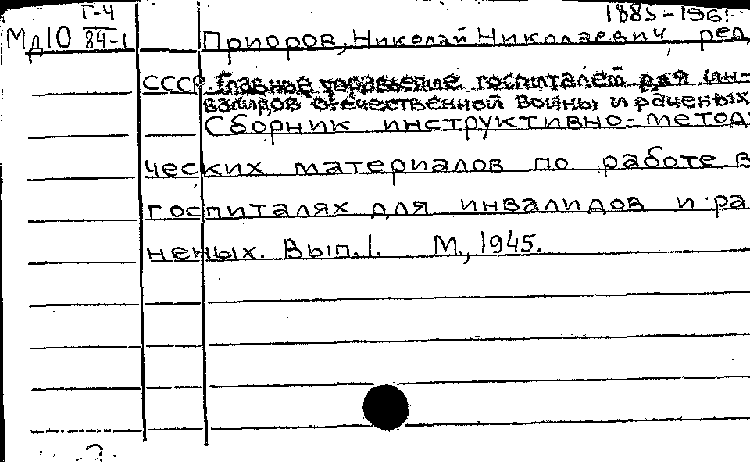 Г-4 1885-196
Мд10 84-1 Приоров, Николай Николаевич, ред
СССР. Главное управление госпиталей для ин-
валидов отечественной войны и раненых
Сборник инструктивно-методи
ческих материалов по работе в
госпиталях для инвалидов и ра
неных. Вып. 1. М., 1945.